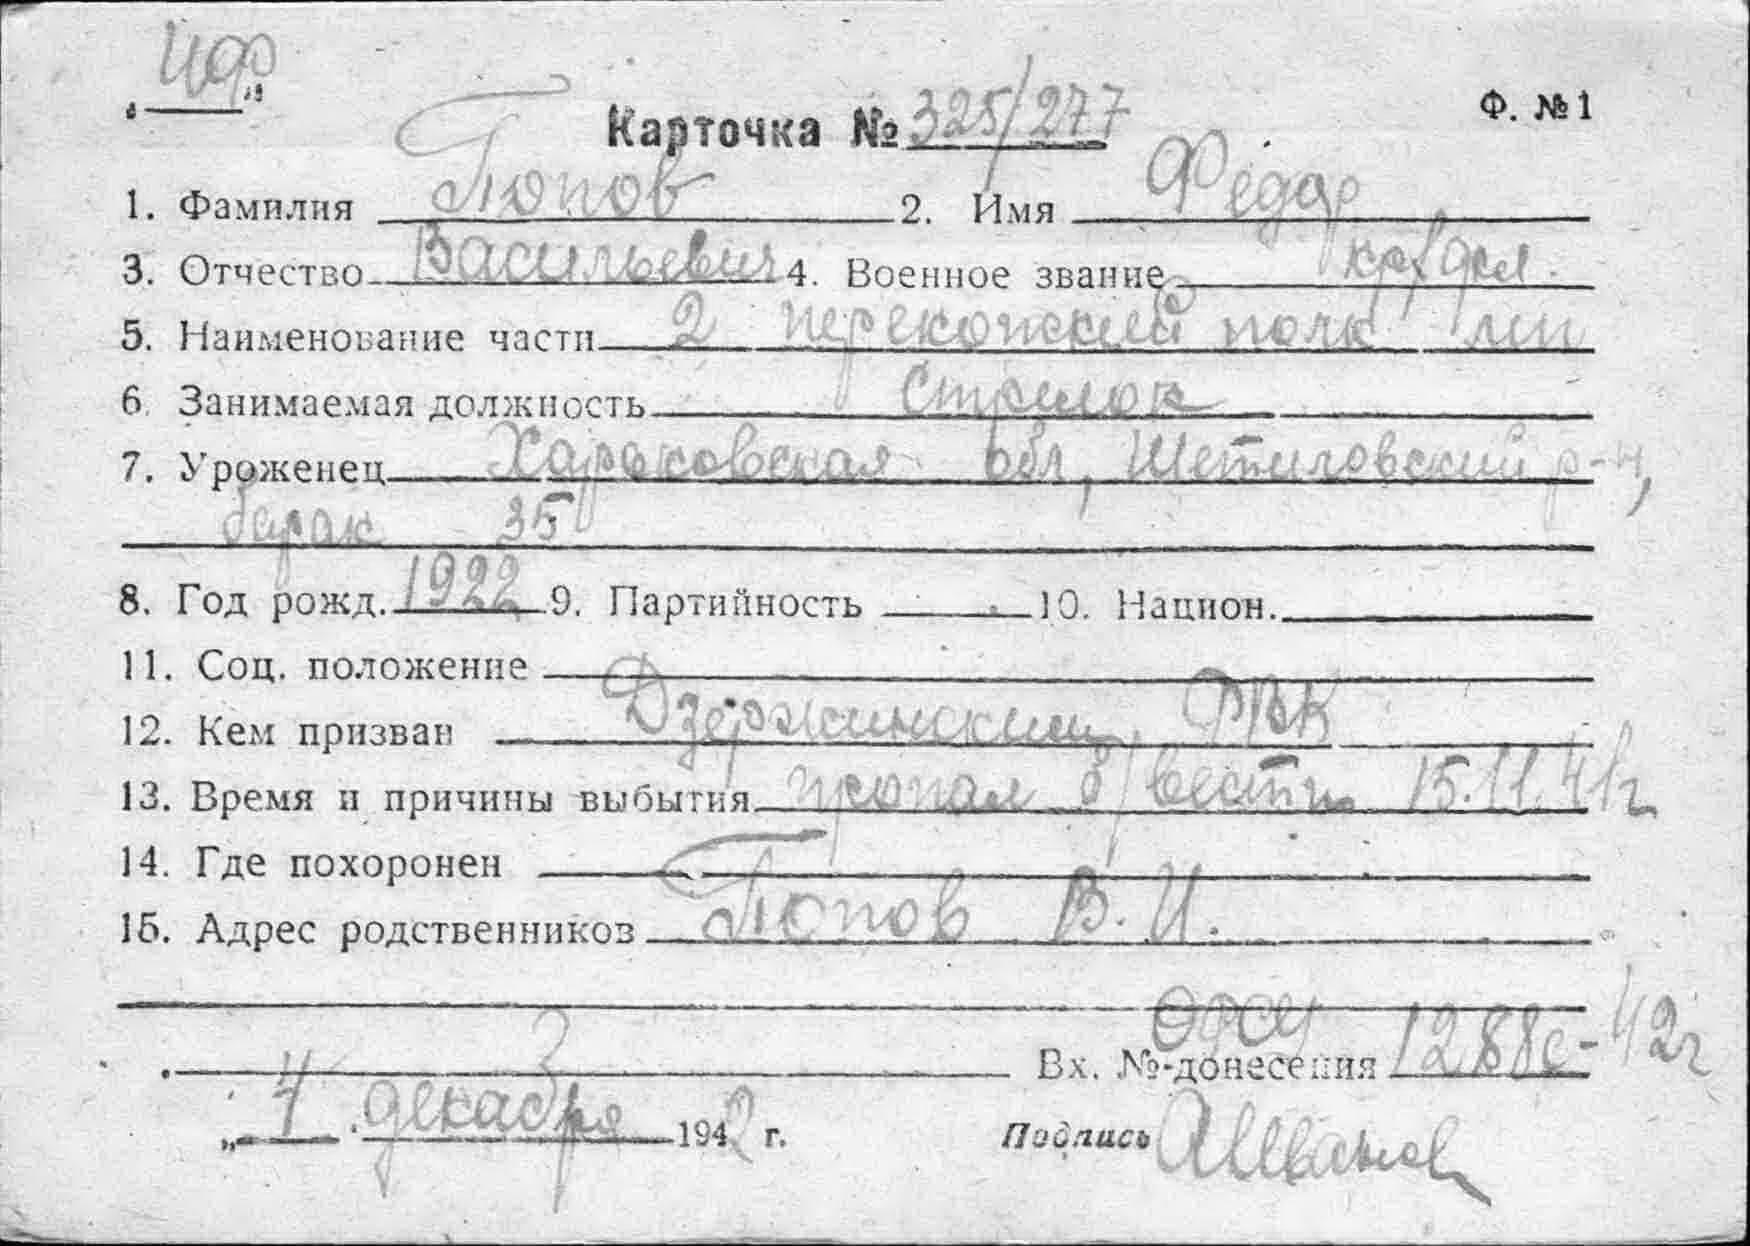 Ф. № 1
Карточка № 325/277
1. Фамилия Попов 2. Имя Федор
3. Отчество Васильевич 4. Военное звание кр/фл.
5. Наименование части 2 перекопский полк мп
6. Занимаемая должность Стрелок
7. Уроженец Харьковская обл, р-н,
барак 35
8. Год рожд. 1922 9. Партийность 10. Национ.
11. Соц. положение
12. Кем призван Дзержинским РВК
13. Время и причины выбытия пропал б/вести 15.11.41г
14. Где похоронен
15. Адрес родственников Попов В. И.
Вх. №-донесения 1288с-42г
„4" декабря 1942 г. Подпись